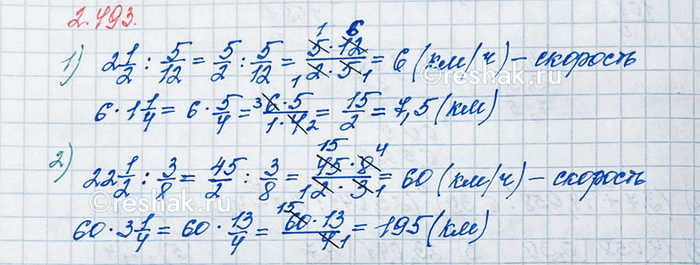 2.493.
1) 2 1/2 : 5/12 = 5/2 : 5/12 = (5 · 12)/(2 · 5) 1 6 1 1 = 6 (км/ч) – скорость
6 · 1 1/4 = 6 · 5/4 = (6 · 5)/(1 · 4) 3 2 = 15/2 = 7,5 (км)
2) 22 1/2 : 3/8 = 45/2 : 3/8 = (45 · 8)/(2 · 3) 15 4 1 1 = 60 (км/ч) – скорость
60 · 3 1/4 = 60 · 13/4 = (60 · 13)/4 15 1 = 195 (км)